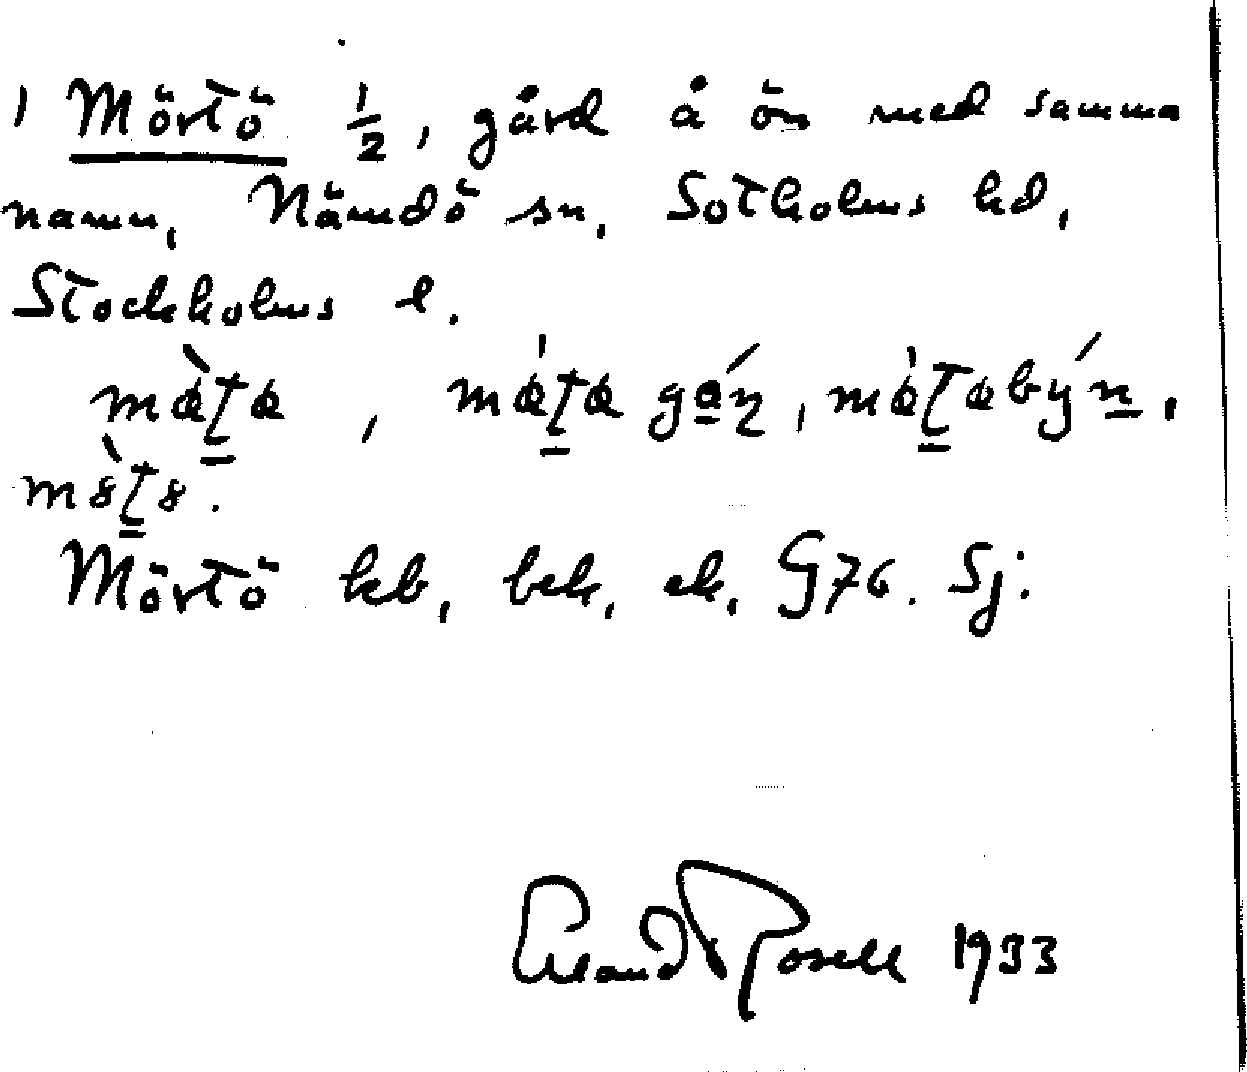 1 Mörtö 1/2, gård å ön med samma
namn, Nämdö sn, Sotholms hd,
Stockholms l.
Mörtö kb, bek, ek, G76. Sj.
Erland Rosell 1933